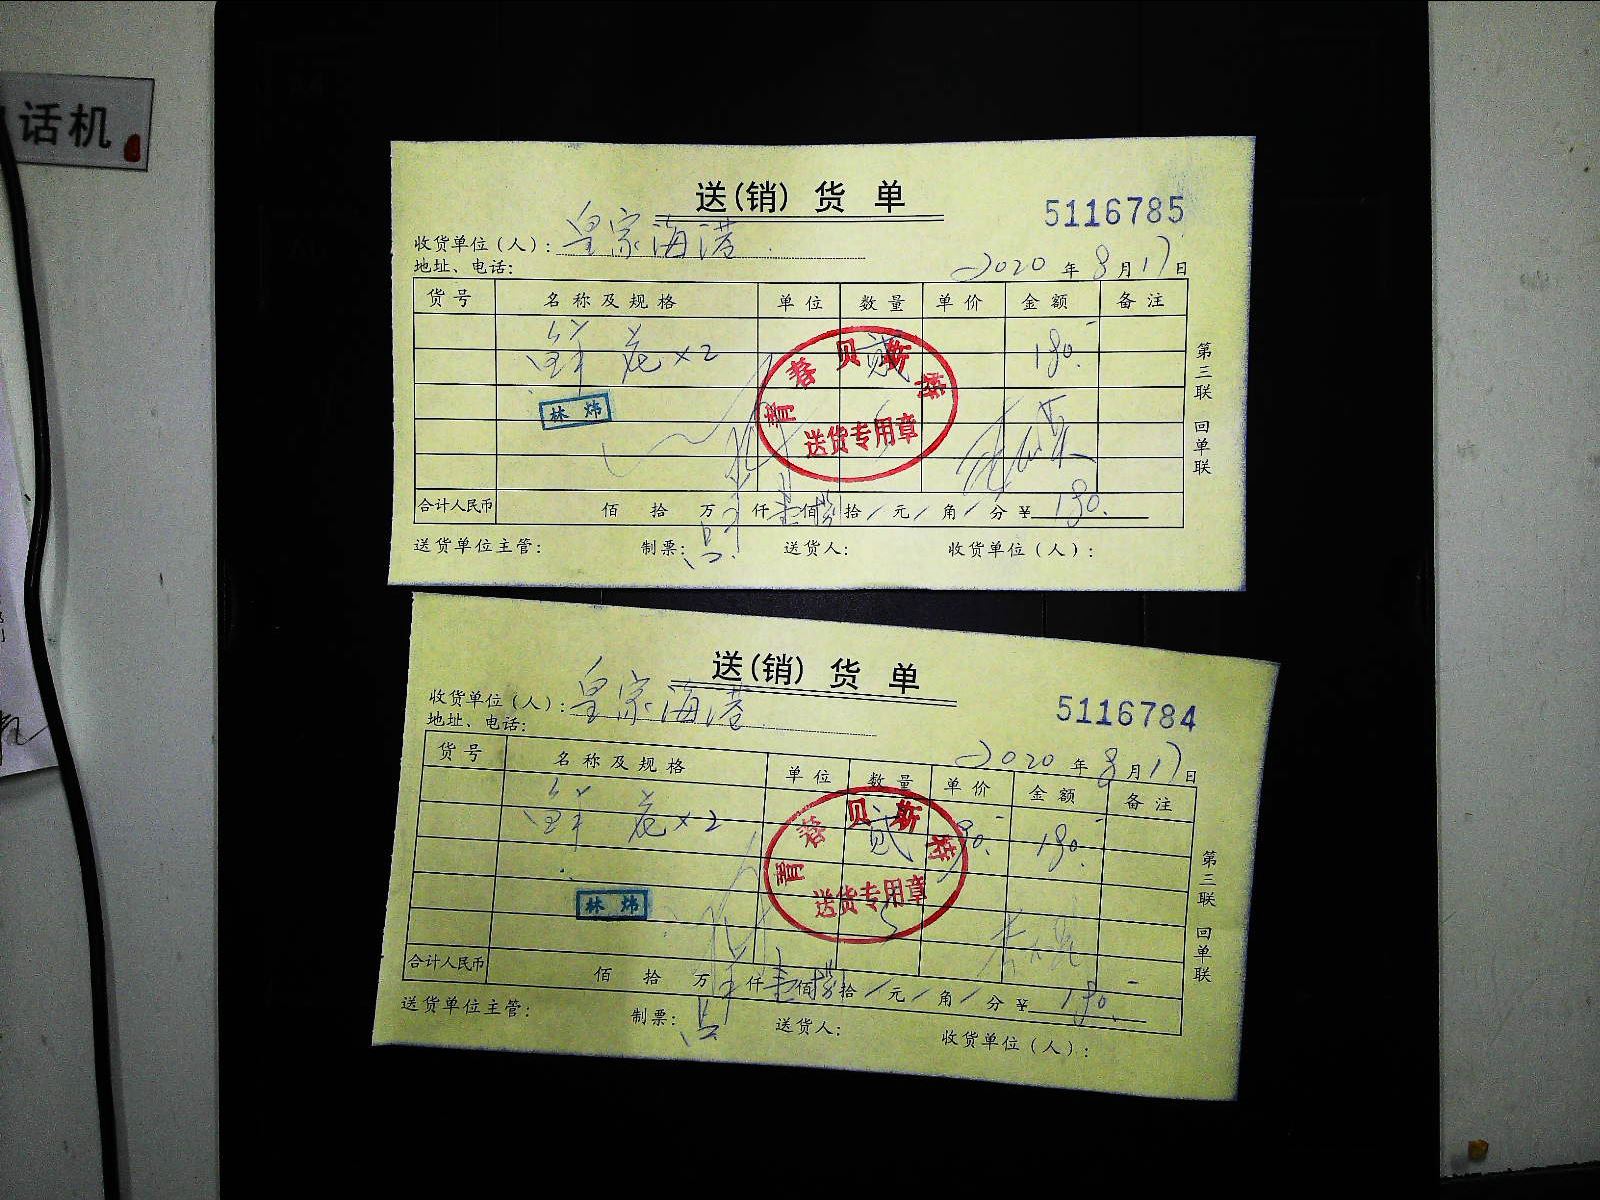 话机
送(销) 货 单
5116785
收货单位(人): 皇家海港
地址、电话:
2020 年 8 月 17 日
货号 名称及规格 单位 数量 单价 金额 备注
鲜花×2 贰 180.-
林炜
青春贝斯特
送货专用章
合计人民币 佰 拾 万 仟 壹 佰 捌 拾 / 元 / 角 / 分 ¥ 180.
送货单位主管: 制票: 送货人: 收货单位(人):
第三联 回单联
送(销) 货 单
5116784
收货单位(人): 皇家海港
地址、电话:
2020 年 8 月 17 日
货号 名称及规格 单位 数量 单价 金额 备注
鲜花×2 贰 90.- 180.-
林炜
青春贝斯特
送货专用章
合计人民币 佰 拾 万 仟 壹 佰 捌 拾 / 元 / 角 / 分 ¥ 180.-
送货单位主管: 制票: 送货人: 收货单位(人):
第三联 回单联